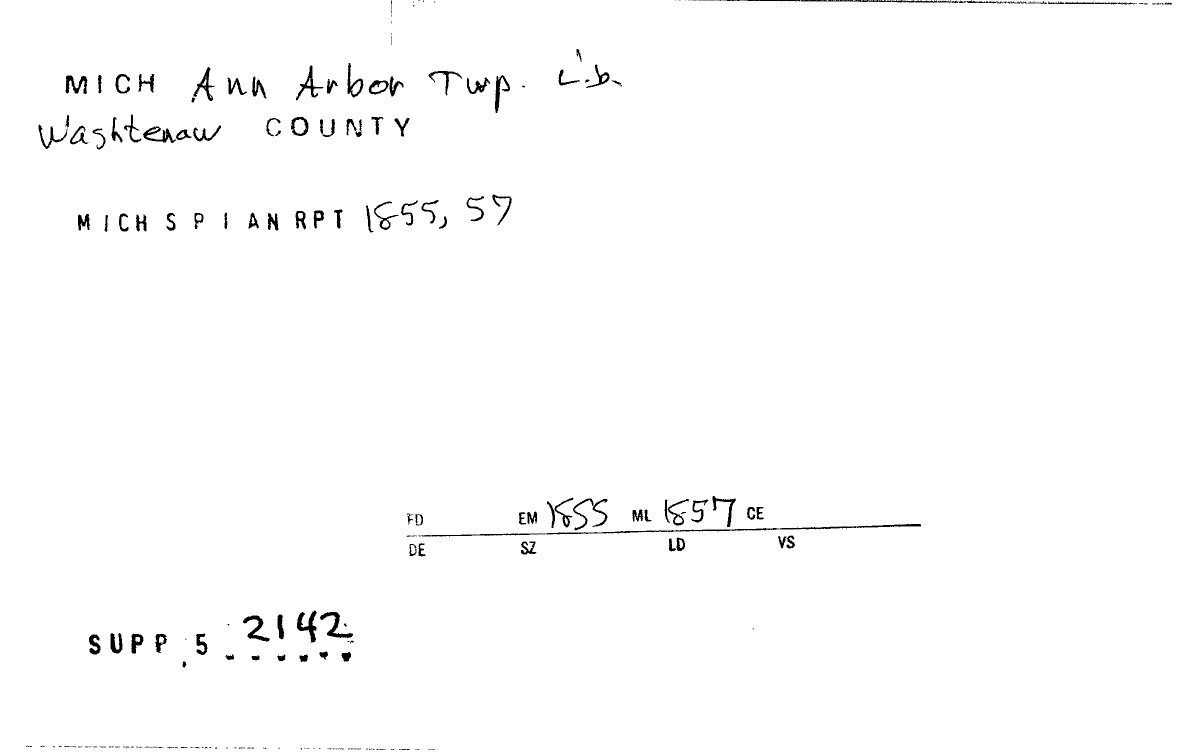 MICH Ann Arbor Twp. Lib.
Washtenaw COUNTY
MICH S P I AN RPT 1855, 57
FD EM 1855 ML 1857 CE
DE SZ LD VS
SUPP. 5 2142